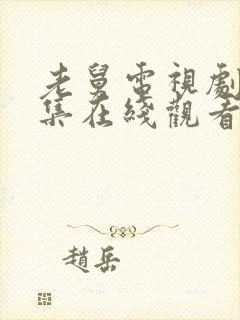 老舅電視劇
集在綫觀看
趙岳